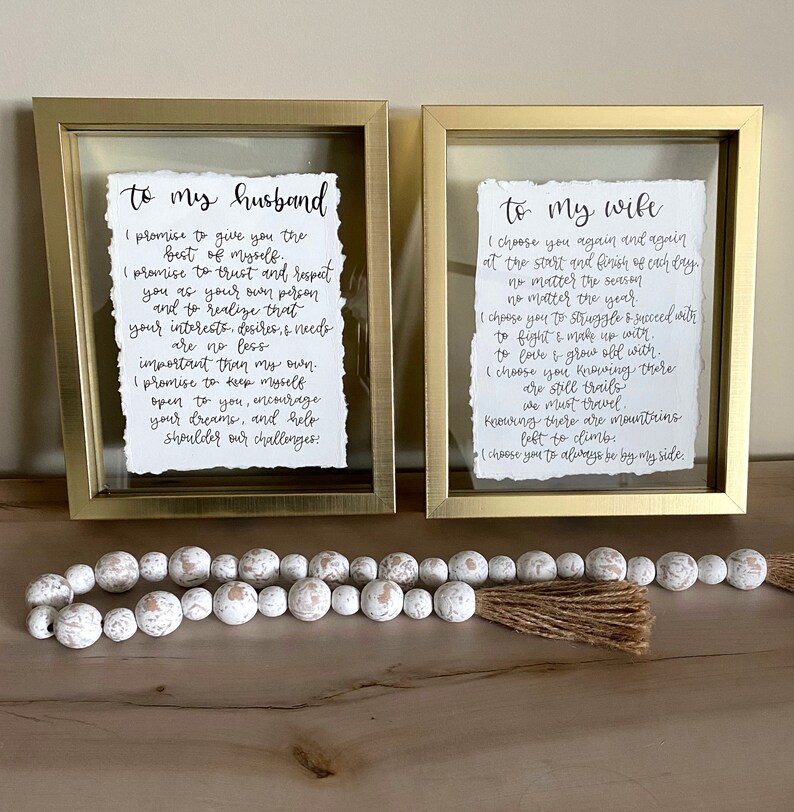 to my husband
I promise to give you the
best of myself.
I promise to trust and respect
you as your own person
and to realize that
your interests, desires, & needs
are no less
important than my own.
I promise to keep myself
open to you, encourage
your dreams, and help
shoulder our challenges.
to my wife
I choose you again and again
at the start and finish of each day.
no matter the season
no matter the year.
I choose you to struggle & succeed with
to fight & make up with.
to love & grow old with.
I choose you knowing there
are still trails
we must travel.
Knowing there are mountains
left to climb.
I choose you to always be by my side.